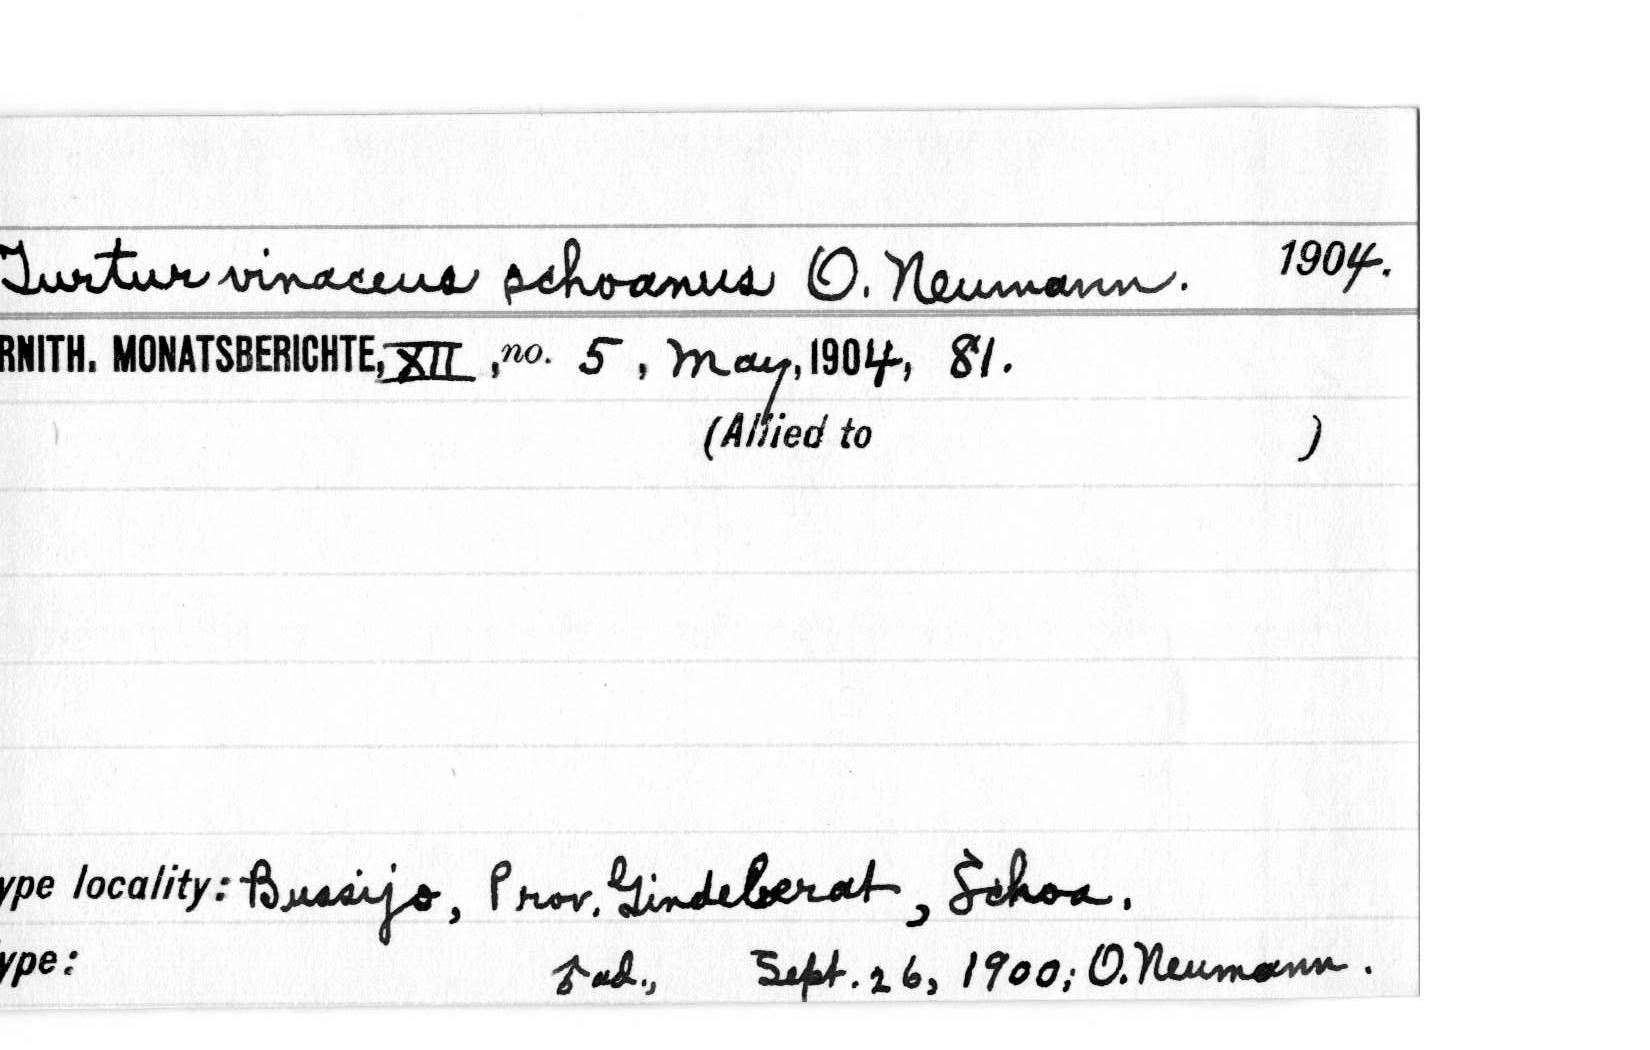 Turtur vinaceus schoanus O. Neumann. 1904.
RNITH. MONATSBERICHTE, XII, no. 5, May, 1904, 81.
(Allied to )
ype locality: Bussijo, Prov. Gindeberat, Schoa.
ype: ♂ ad., Sept. 26, 1900; O. Neumann.